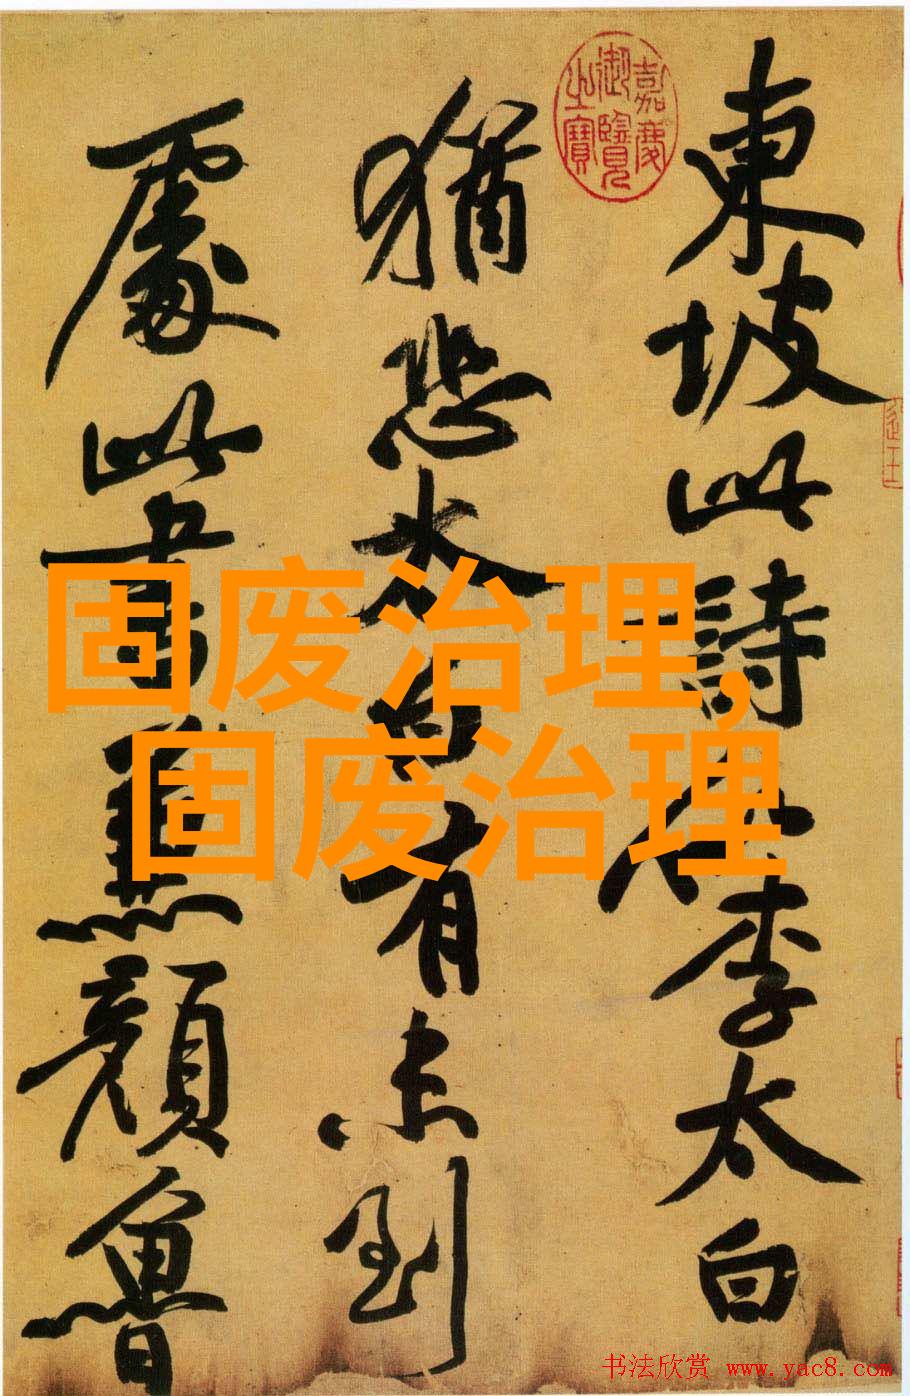 東坡此詩似李太白
猶恐太白有未到
處此書兼顏魯
嘉慶
御覽
之寶
固废治理,
固废治理
书法欣赏 www.yac8.com